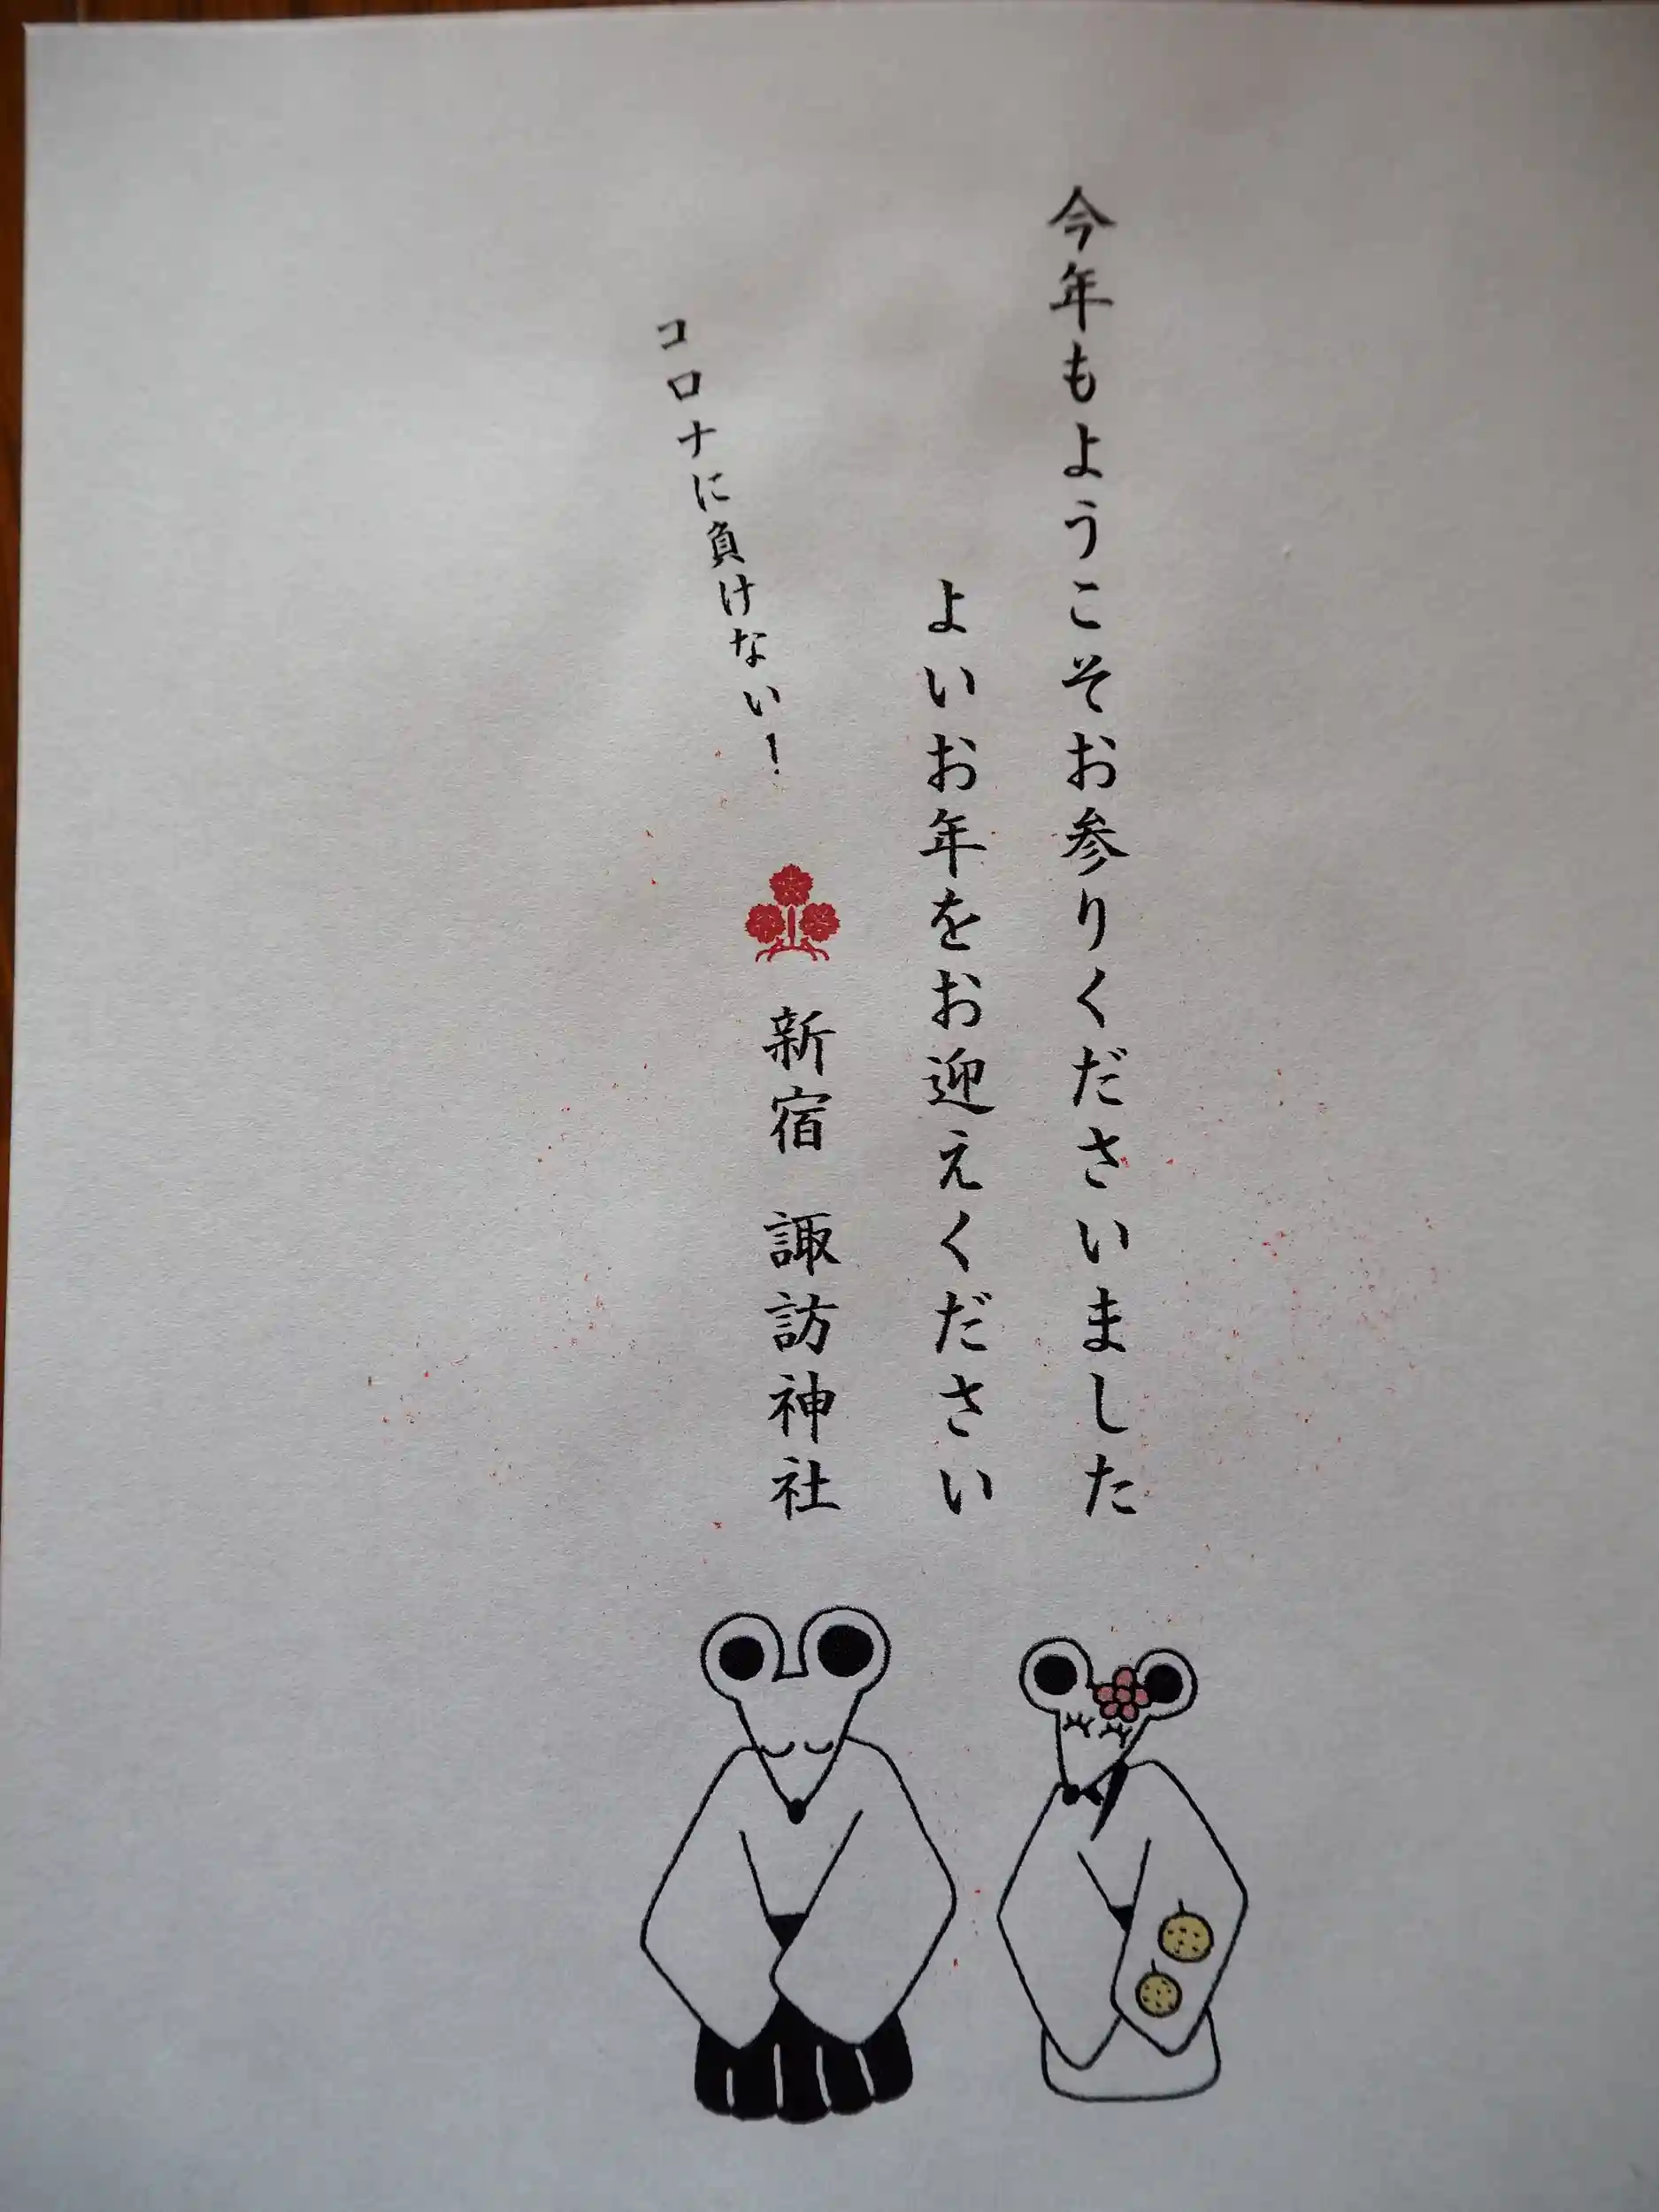 今年もようこそお参りくださいました
よいお年をお迎えください
新宿 諏訪神社
コロナに負けない!